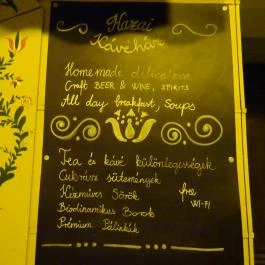 Hazai
Kávéház
Homemade delicatesse
Craft BEER & WINE, SPIRITS
All day breakfast, Soups
Tea és kávé különlegességek
Cukrász sütemények
Kézműves Sörök
free
WI-FI
Biodinamikus Borok
Prémium Pálinkák